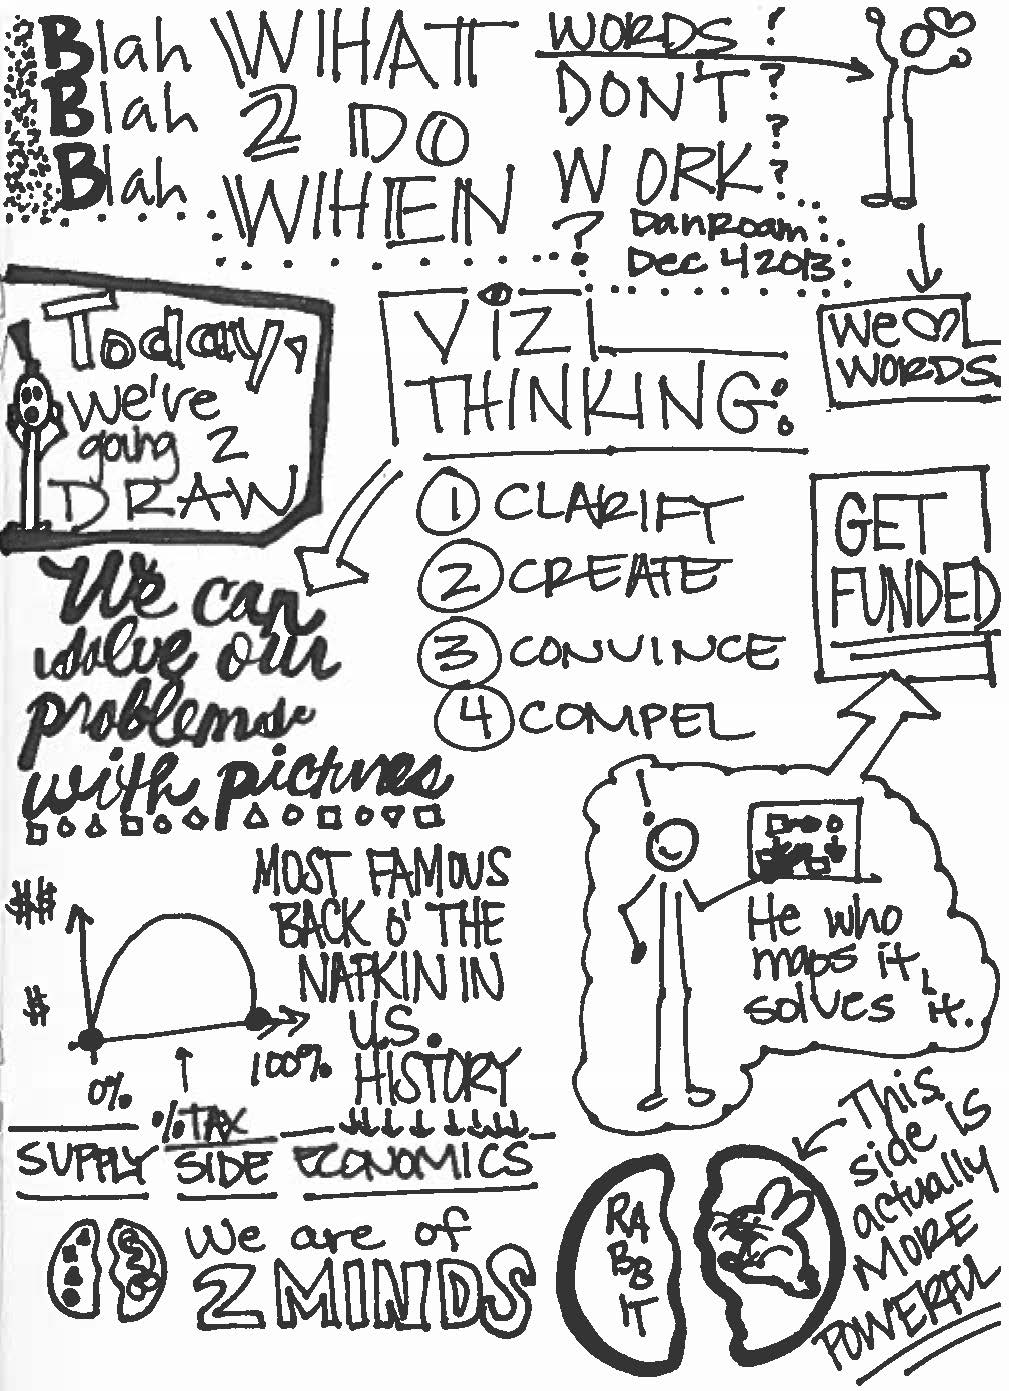 Blah
Blah
Blah
WHAT
2 DO
WHEN
WORDS ?
DON'T ?
WORK ?
?
?
DanRoam
Dec 4 2013
We ♡
WORDS
Today,
we're
going 2
DRAW
VIZ
THINKING:
1 CLARIFY
2 CREATE
3 CONVINCE
4 COMPEL
GET
FUNDED
We can
solve our
problems
with pictures
He who
maps it,
solves it.
MOST FAMOUS
BACK O' THE
NAPKIN IN
U.S.
HISTORY
$$
$
0%
100%
% TAX
SUPPLY SIDE ECONOMICS
We are of
2 MINDS
RA
BB
IT
This
side IS
actually
MORE
POWERFUL